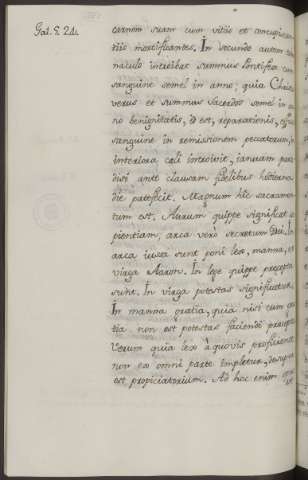 Gal. 5. 24.
carnem suam cum vitiis et concupiscen
tiis mortificantes. In secundo autem
naculo intrebat summus Pontifex cum
sanguine semel in anno; quia Christus
verus et summus sacerdos semel in
no benignitatis, id est, reparationis,
sanguine in remissionem peccatorum,
interiora celi introivit, ianuam para
disi ante clausam fidelibus
die patefecit. Magnum hic sacramen
tum est. Aurum quippe significat sa
pientiam; arca vero secretum Dei. In
arca iuxta sunt poni lex, manna, et
virga Aaron. In lege quippe precepta
sunt. In virga potestas significatur.
In manna gratia, quia nisi cum gra
tia non est potestas faciendi precepta.
Verum quia lex à quovis proficiente
non ex omni parte impletur, desuper
est propiciatorium. Ad hoc enim